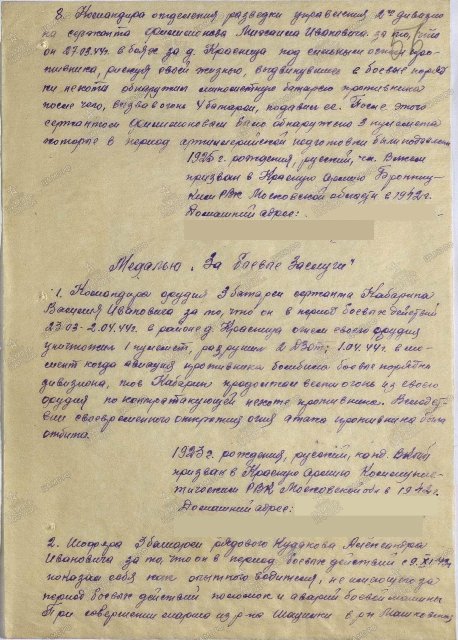 8. Командира отделения разведки управления 2го дивизио
на сержанта Михаила Ивановича за то, что
он 27.03.44г. в боях за д. Красница под сильным огнем про-
тивника, рискуя своей жизнью, выдвинувшись в боевые поряд
ки пехоты обнаружил минометную батарею противника
после чего, вызвав огонь 4 батареи, подавил ее. После этого
сержантом было обнаружено 2 пулемета
которые в период артиллерийской подготовки были подавлены
1925 г. рождения, русский, чл. ВЛКСМ
призван в Красную Армию
ким РВК Московской области в 1942 г.
Домашний адрес:
Медалью „За боевые Заслуги"
1. Командира орудия 3 батареи сержанта Кабарина
Василия Ивановича за то, что он в период боевых действий
23.03-2.04.44г. в районе д. Красница огнем своего орудия
уничтожил 1 пулемет, разрушил 2 ДЗОТ; 1.04.44г. в мо-
мент когда авиация противника бомбила боевые порядки
дивизиона, тов. Кабарин продолжал вести огонь из своего
орудия по контратакующей пехоте противника. Вследст-
вие своевременного открытия огня атака противника была
отбита.
1923 г. рождения, русский, канд. ВКП(б)
призван в Красную Армию Коммунис-
тическим РВК Московской обл. в 1942 г.
Домашний адрес:
2. Шофера 3 батареи рядового Кудакова Александра
Ивановича за то, что он в период боевых действий с
показал себя как опытного водителя, не имеющего за
период боевых действий поломок и аварий боевой машины
При совершении марша из р-на в р-н